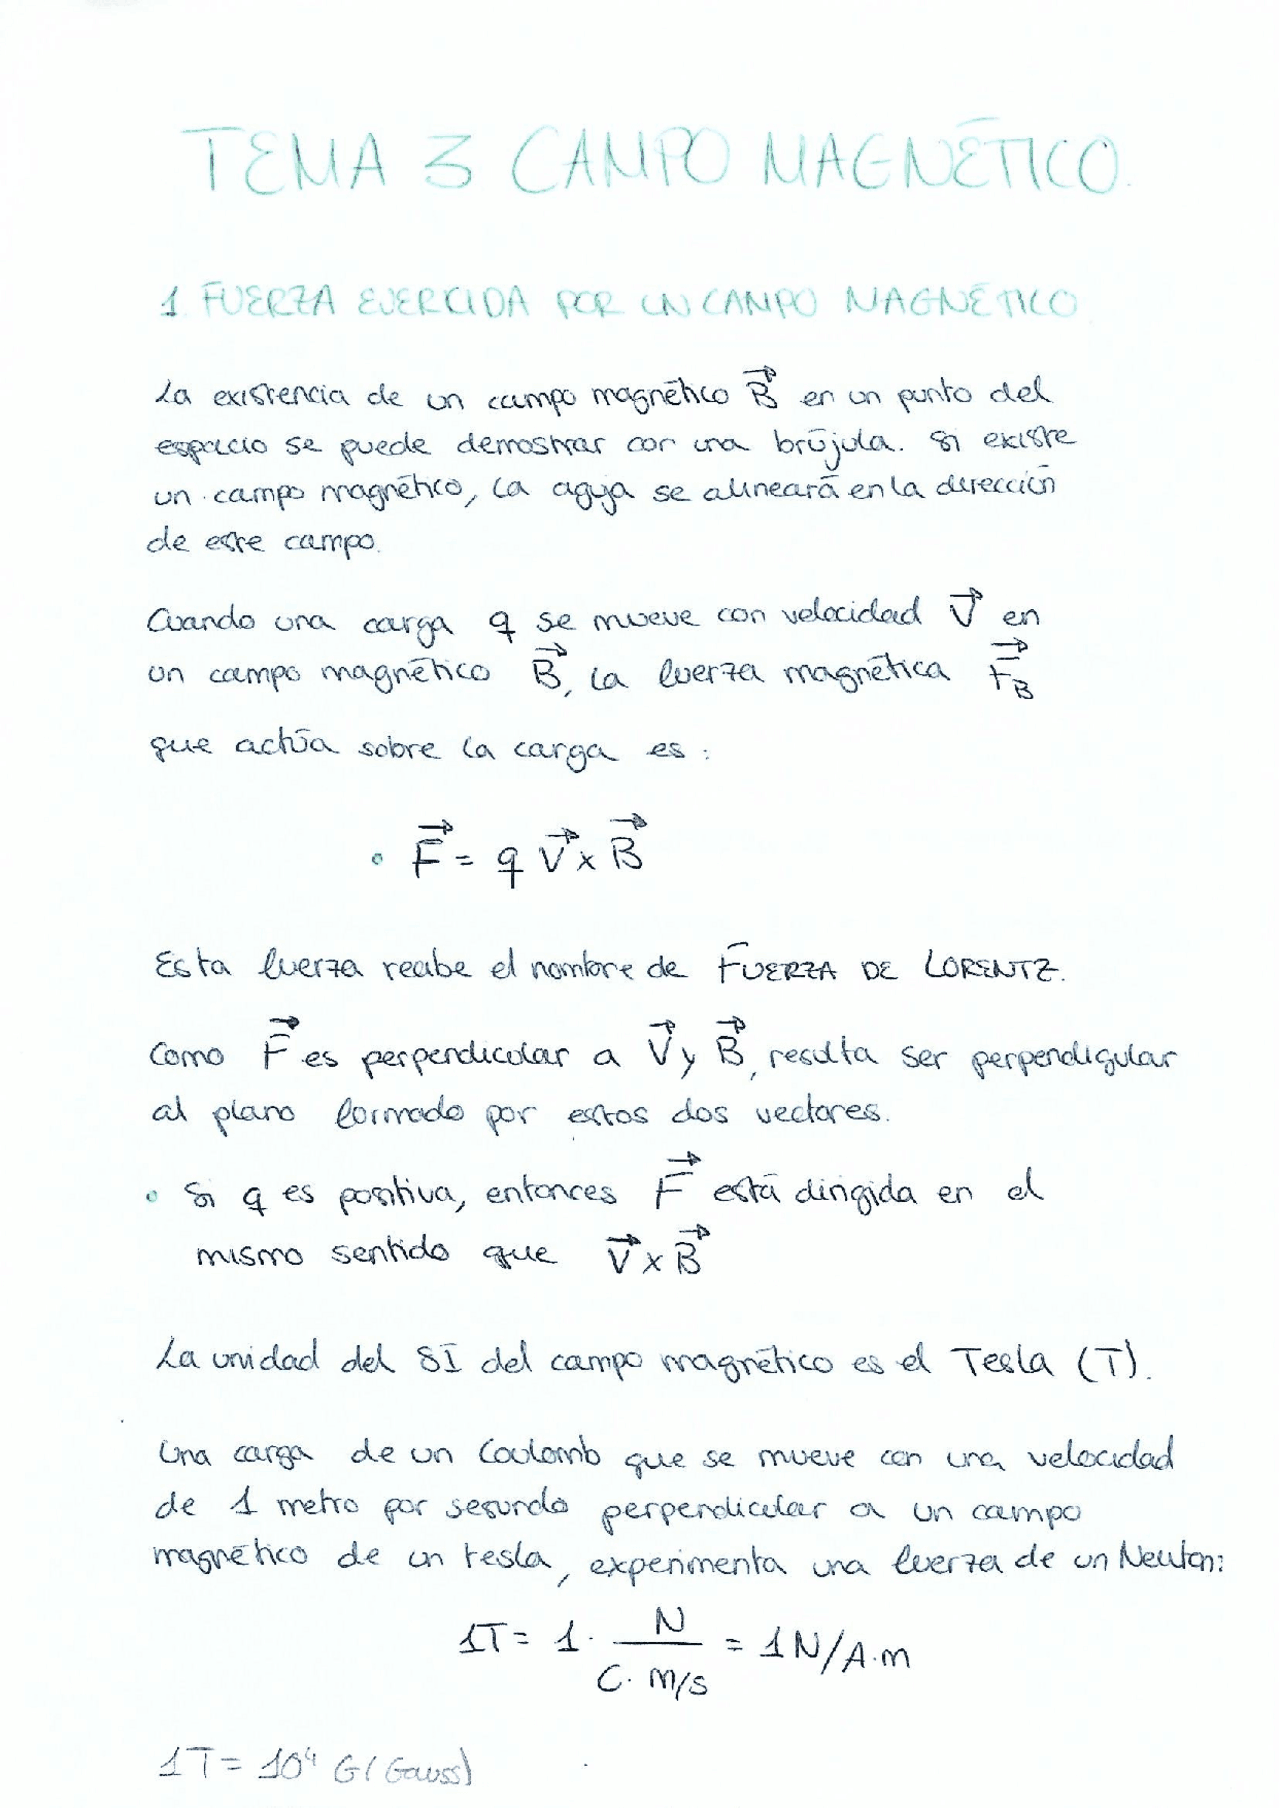 TEMA 3 CAMPO MAGNÉTICO.
1. FUERZA EJERCIDA POR UN CAMPO MAGNÉTICO
La existencia de un campo magnético B⃗ en un punto del
espacio se puede demostrar con una brújula. Si existe
un campo magnético, la aguja se alineará en la dirección
de este campo.
Cuando una carga q se mueve con velocidad V⃗ en
un campo magnético B⃗, la fuerza magnética F⃗_B
que actúa sobre la carga es:
• F⃗ = q V⃗ x B⃗
Esta fuerza recibe el nombre de FUERZA DE LORENTZ.
Como F⃗ es perpendicular a V⃗ y B⃗, resulta ser perpendigular
al plano formado por estos dos vectores.
• Si q es positiva, entonces F⃗ está dirigida en el
mismo sentido que V⃗ x B⃗
La unidad del SI del campo magnético es el Tesla (T).
Una carga de un Coulomb que se mueve con una velocidad
de 1 metro por segundo perpendicular a un campo
magnético de un tesla, experimenta una fuerza de un Newton:
1T = 1 · N / (C · m/s) = 1 N/A·m
1T = 10⁴ G (Gauss)